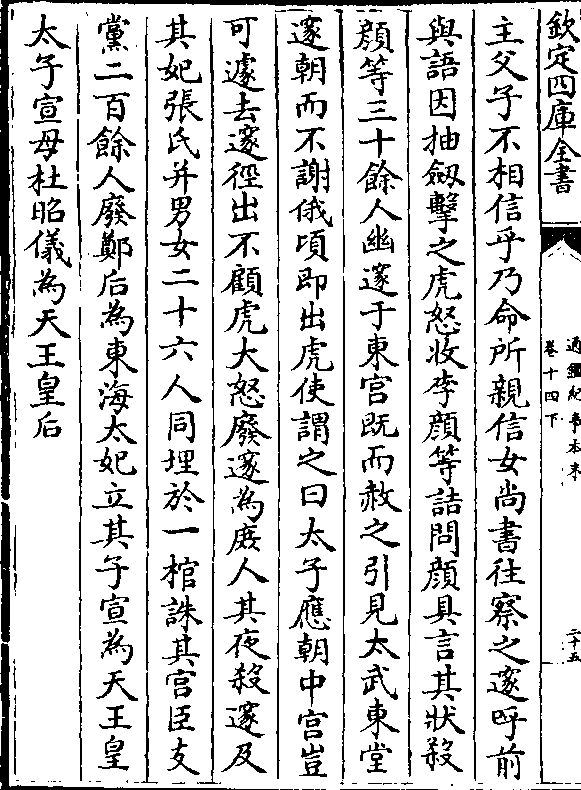 欽定四庫全書
通鑑紀事本末
卷十四下
二十五
主父子不相信乎乃命所親信女尚書往察之邃呼前
與語因抽劔擊之虎怒收李顔等詰問顔具言其狀殺
顔等三十餘人幽邃于東宫既而赦之引見太武東堂
邃朝而不謝俄頃即出虎使謂之曰太子應朝中宫豈
可遽去邃徑出不顧虎大怒廢邃為庶人其夜殺邃及
其妃張氏并男女二十六人同埋於一棺誅其宫臣支
黨二百餘人廢鄭后為東海太妃立其子宣為天王皇
太子宣母杜昭儀為天王皇后